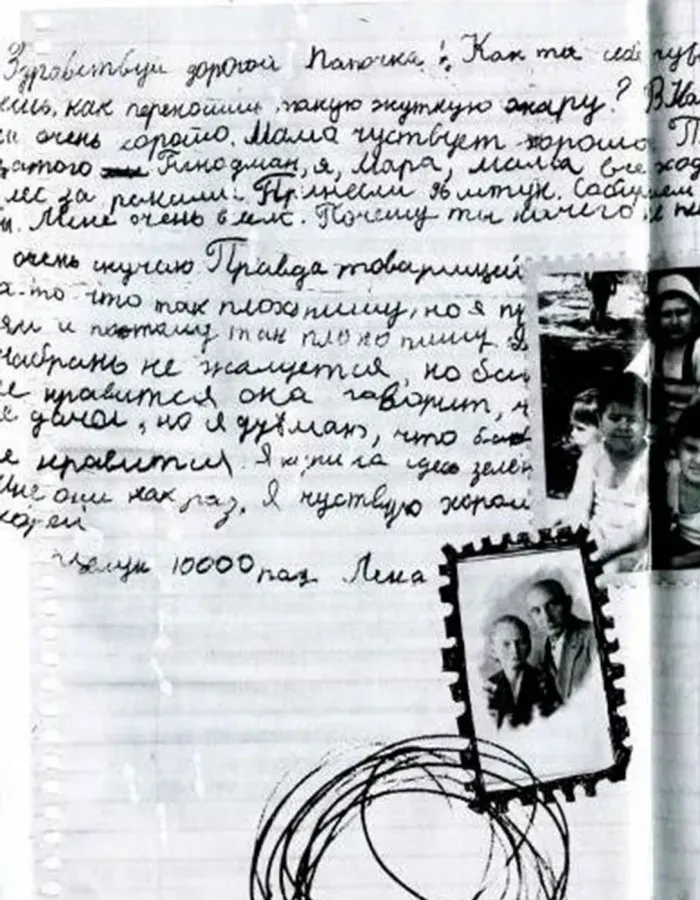 Здравствуй дорогой Папочка! Как ты себя чув
ешь, как переносишь такую жуткую жару? В Ка
очень хорошо. Мама чуствует хорошо. П
Гинодман, я, Мара, мама все ход
лес за Принесли 96 штук. Собираем
Мне очень Почему ты ничего не пи
очень скучаю Правда товарищей
а-то что так плохо пишу, но я пр
ям и поэтому так плохо пишу. Я
не жалуется, но бои
нравится она гаворит, ч
дачей, но я думаю, что
нравится. Я купила здесь зелен
Мне они как раз. Я чуствую хорош
Целую 10000 раз Лена